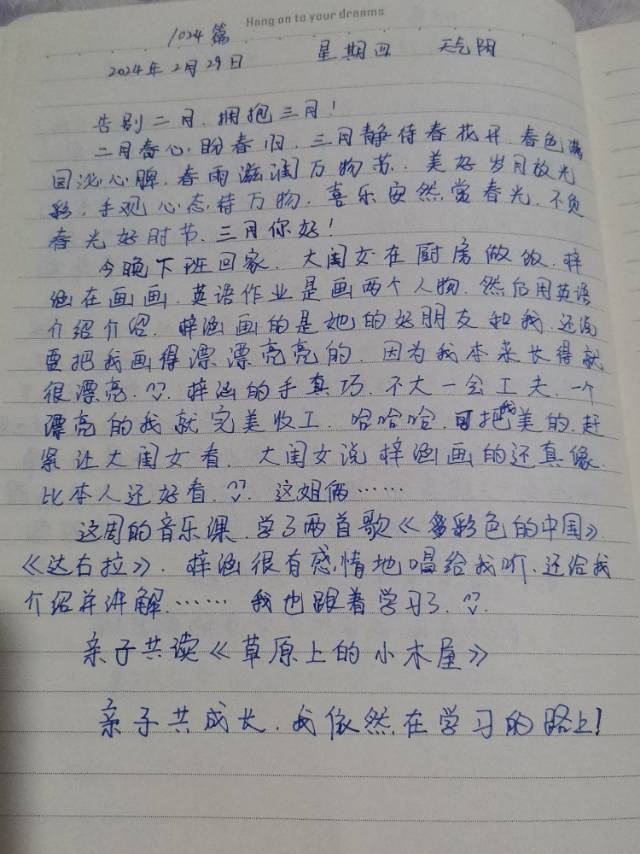 Hang on to your dreams
1024篇
2024年2月29日 星期四 天气阴
告别二月.拥抱三月!
二月春心.盼春归.三月静待春花开.春色满
园沁心脾.春雨滋润万物苏.美好岁月放光
彩.手观心态待万物.喜乐安然赏春光.不负
春光好时节.三月你好!
今晚下班回家.大闺女在厨房做饭.梓
涵在画画.英语作业是画两个人物.然后用英语
介绍介绍.梓涵画的是她的好朋友和我.还说
要把我画得漂漂亮亮的.因为我本来长得就
很漂亮.^^.梓涵的手真巧.不大一会工夫.一个
漂亮的我就完美收工.哈哈哈.可把我美的.赶
紧让大闺女看.大闺女说梓涵画的还真像.
比本人还好看.^^.这姐俩……
这周的音乐课.学了两首歌《多彩色的中国》
《达右拉》.梓涵很有感情地唱给我听.还给我
介绍并讲解……我也跟着学习了.^^.
亲子共读《草原上的小木屋》
亲子共成长.我依然在学习的路上!